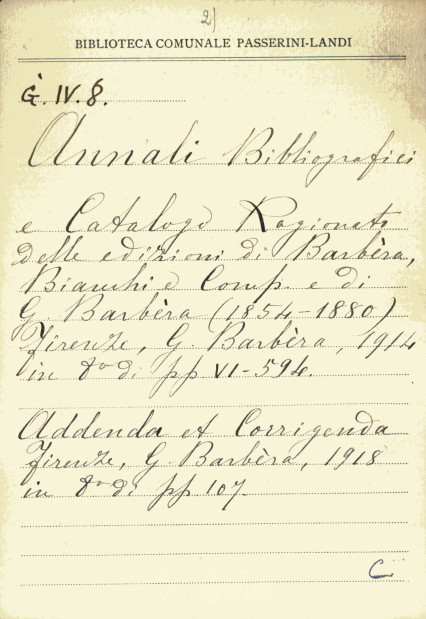 2)
BIBLIOTECA COMUNALE PASSERINI-LANDI
G. IV. 8.
Annali Bibliografici
e Catalogo Ragionato
delle edizioni di Barbèra,
Bianchi e Comp. e di
G. Barbèra (1854-1880)
Firenze, G. Barbèra, 1914
in 8º di pp VI-594.
Addenda et Corrigenda
Firenze, G. Barbèra, 1918
in 8º di pp 107.
C